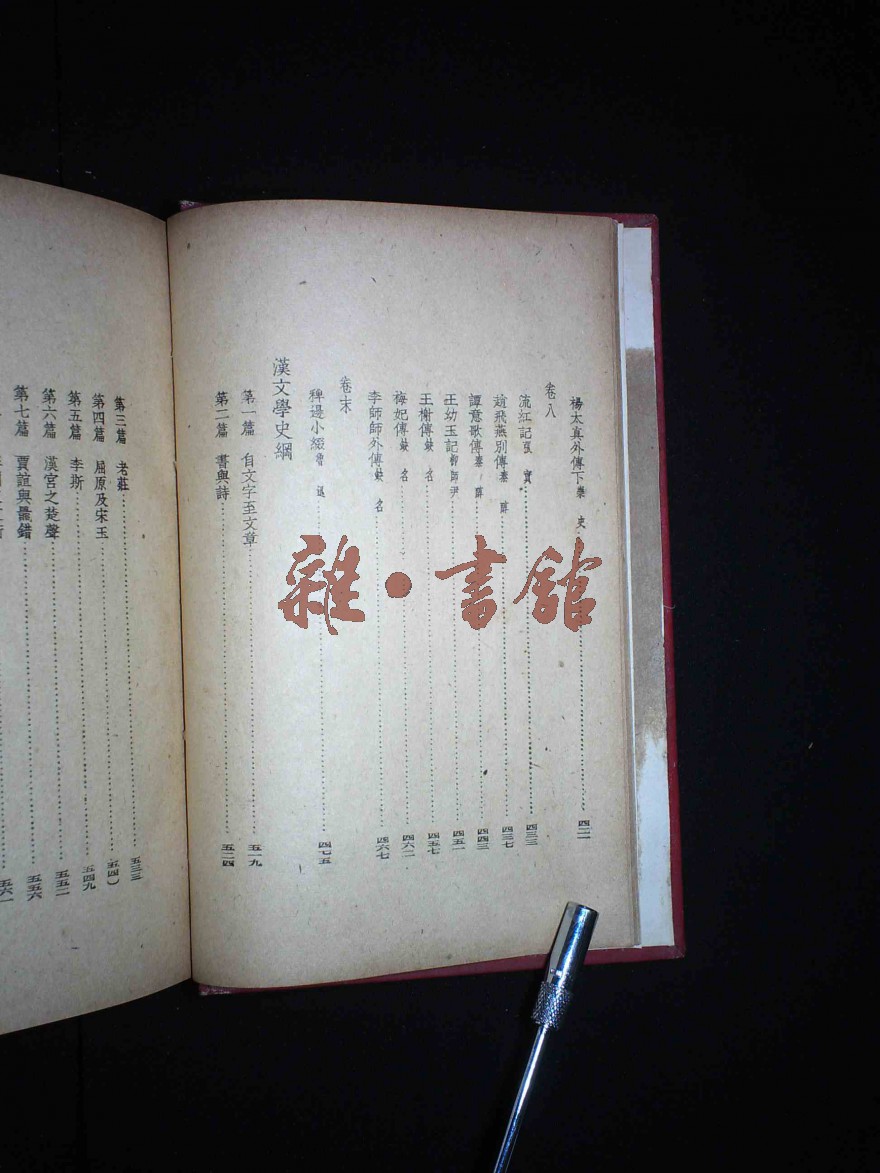 楊太真外傳下樂史……四二二
卷八
流紅記張實……四三三
趙飛燕別傳秦醇……四三七
譚意歌傳秦醇……四四三
王幼玉記柳師尹……四五一
王榭傳缺名……四五七
梅妃傳缺名……四六二
李師師外傳缺名……四六七
卷末
稗邊小綴魯迅……四七五
漢文學史綱
第一篇 自文字至文章……五一九
第二篇 書與詩……五二四
第三篇 老莊……五三三
第四篇 屈原及宋玉……五四〇
第五篇 李斯……五四九
第六篇 漢宮之楚聲……五五二
第七篇 賈誼與鼂錯……五五六
五六一
雜·書館